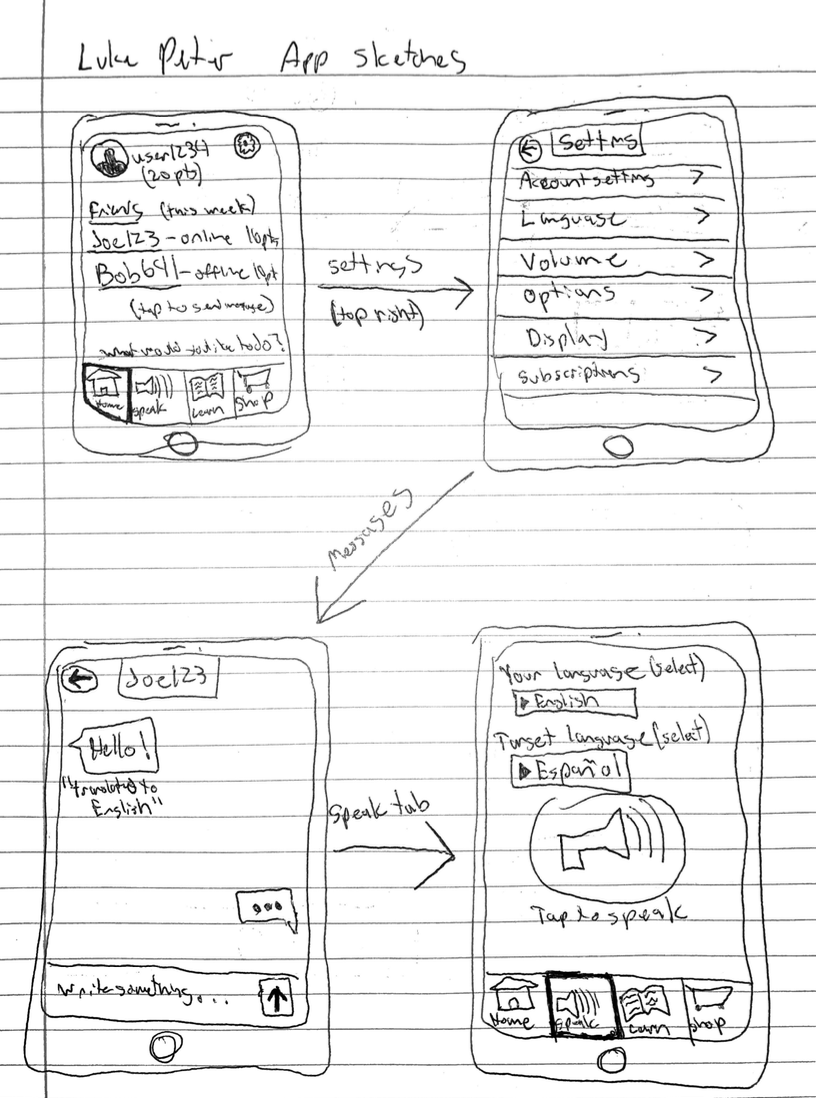 Luke Peter App sketches
user1234
(20 pts)
Friends (this week)
Joe123 - online 10pts
Bob641 - offline 10pt
(tap to send message)
what would you like to do?
Home speak Learn shop
settings
(top right)
Settings
Account settings >
Language >
Volume >
options >
Display >
subscriptions >
Messages
Joe123
Hello!
"translated to
English"
...
write something...
Speak tab
Your language (select)
English
Target language (select)
Español
Tap to speak
Home speak Learn shop